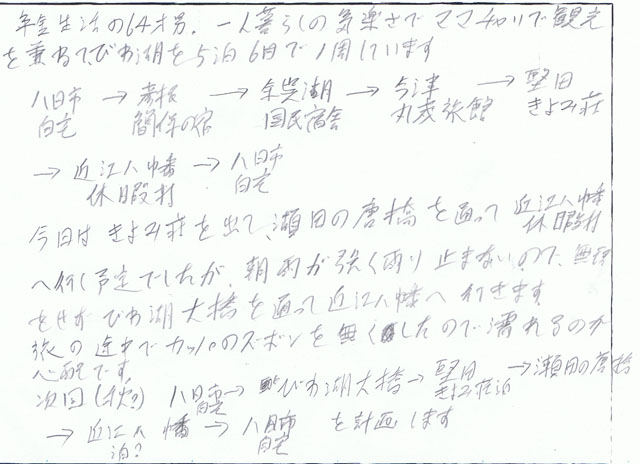 年金生活の64才男、一人暮らしの気楽さでママチャリで観光
を重ねて、びわ湖を5泊6日で1周しています
八日市 → 彦根 → 余呉湖 → 今津 → 堅田
自宅 関係の宿 国民宿舎 丸茂旅館 きよみ荘
→ 近江八幡 → 八日市
休暇村 自宅
今日はきよみ荘を出て、瀬田の唐橋を通って近江八幡
休暇村
へ行く予定でしたが、朝雨が強く雨り止まないので、無理
をせずびわ湖大橋を通って近江八幡へ行きます
旅の途中でカッパのズボンを無くしたので濡れるのが
心配です
次回(秋?) 八日市 → びわ湖大橋 → 堅田 → 瀬田の唐橋
自宅 きよみ荘泊
→ 近江八幡 → 八日市 を計画します
泊? 自宅